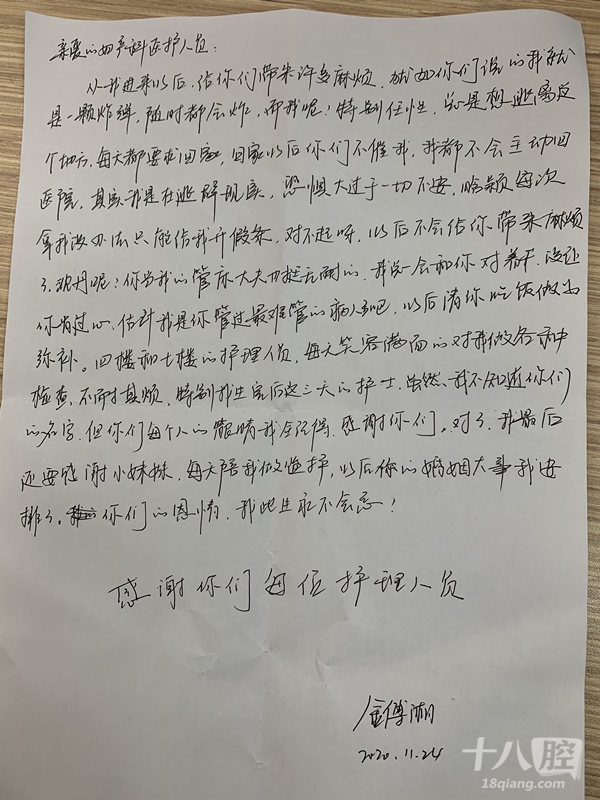 亲爱的妇产科医护人员：
从我进来以后，给你们带来许多麻烦，就如你们说的我就
是一颗炸弹，随时都会炸，而我呢！特别任性，总是想逃离这
个地方，每天都要求回家，回家以后你们不催我，我都不会主动回
医院，其实我是在逃避现实，恐惧大过于一切不安，晗颖每次
拿我没办法只能给我开假条，对不起呀，以后不会给你带来麻烦
了，现月呢！你当我的管床大夫也挺无耐的，我总会和你对着干，没让
你省过心，估计我是你管过最难管的病人吧，以后请你吃饭做为
弥补。四楼和七楼的护理人员，每天笑容满面的对我做各种
检查，不耐其烦，特别我生完后这三天的护士，虽然，我不知道你们
的名字，但你们每个人的眼睛我会记得，感谢你们。对了，我最后
还要感谢小妹妹，每天陪我做监护，以后你的婚姻大事我安
排了。你们的恩情，我此生永不会忘！
感谢你们每位护理人员
2020.11.24
十八腔
18qiang.com